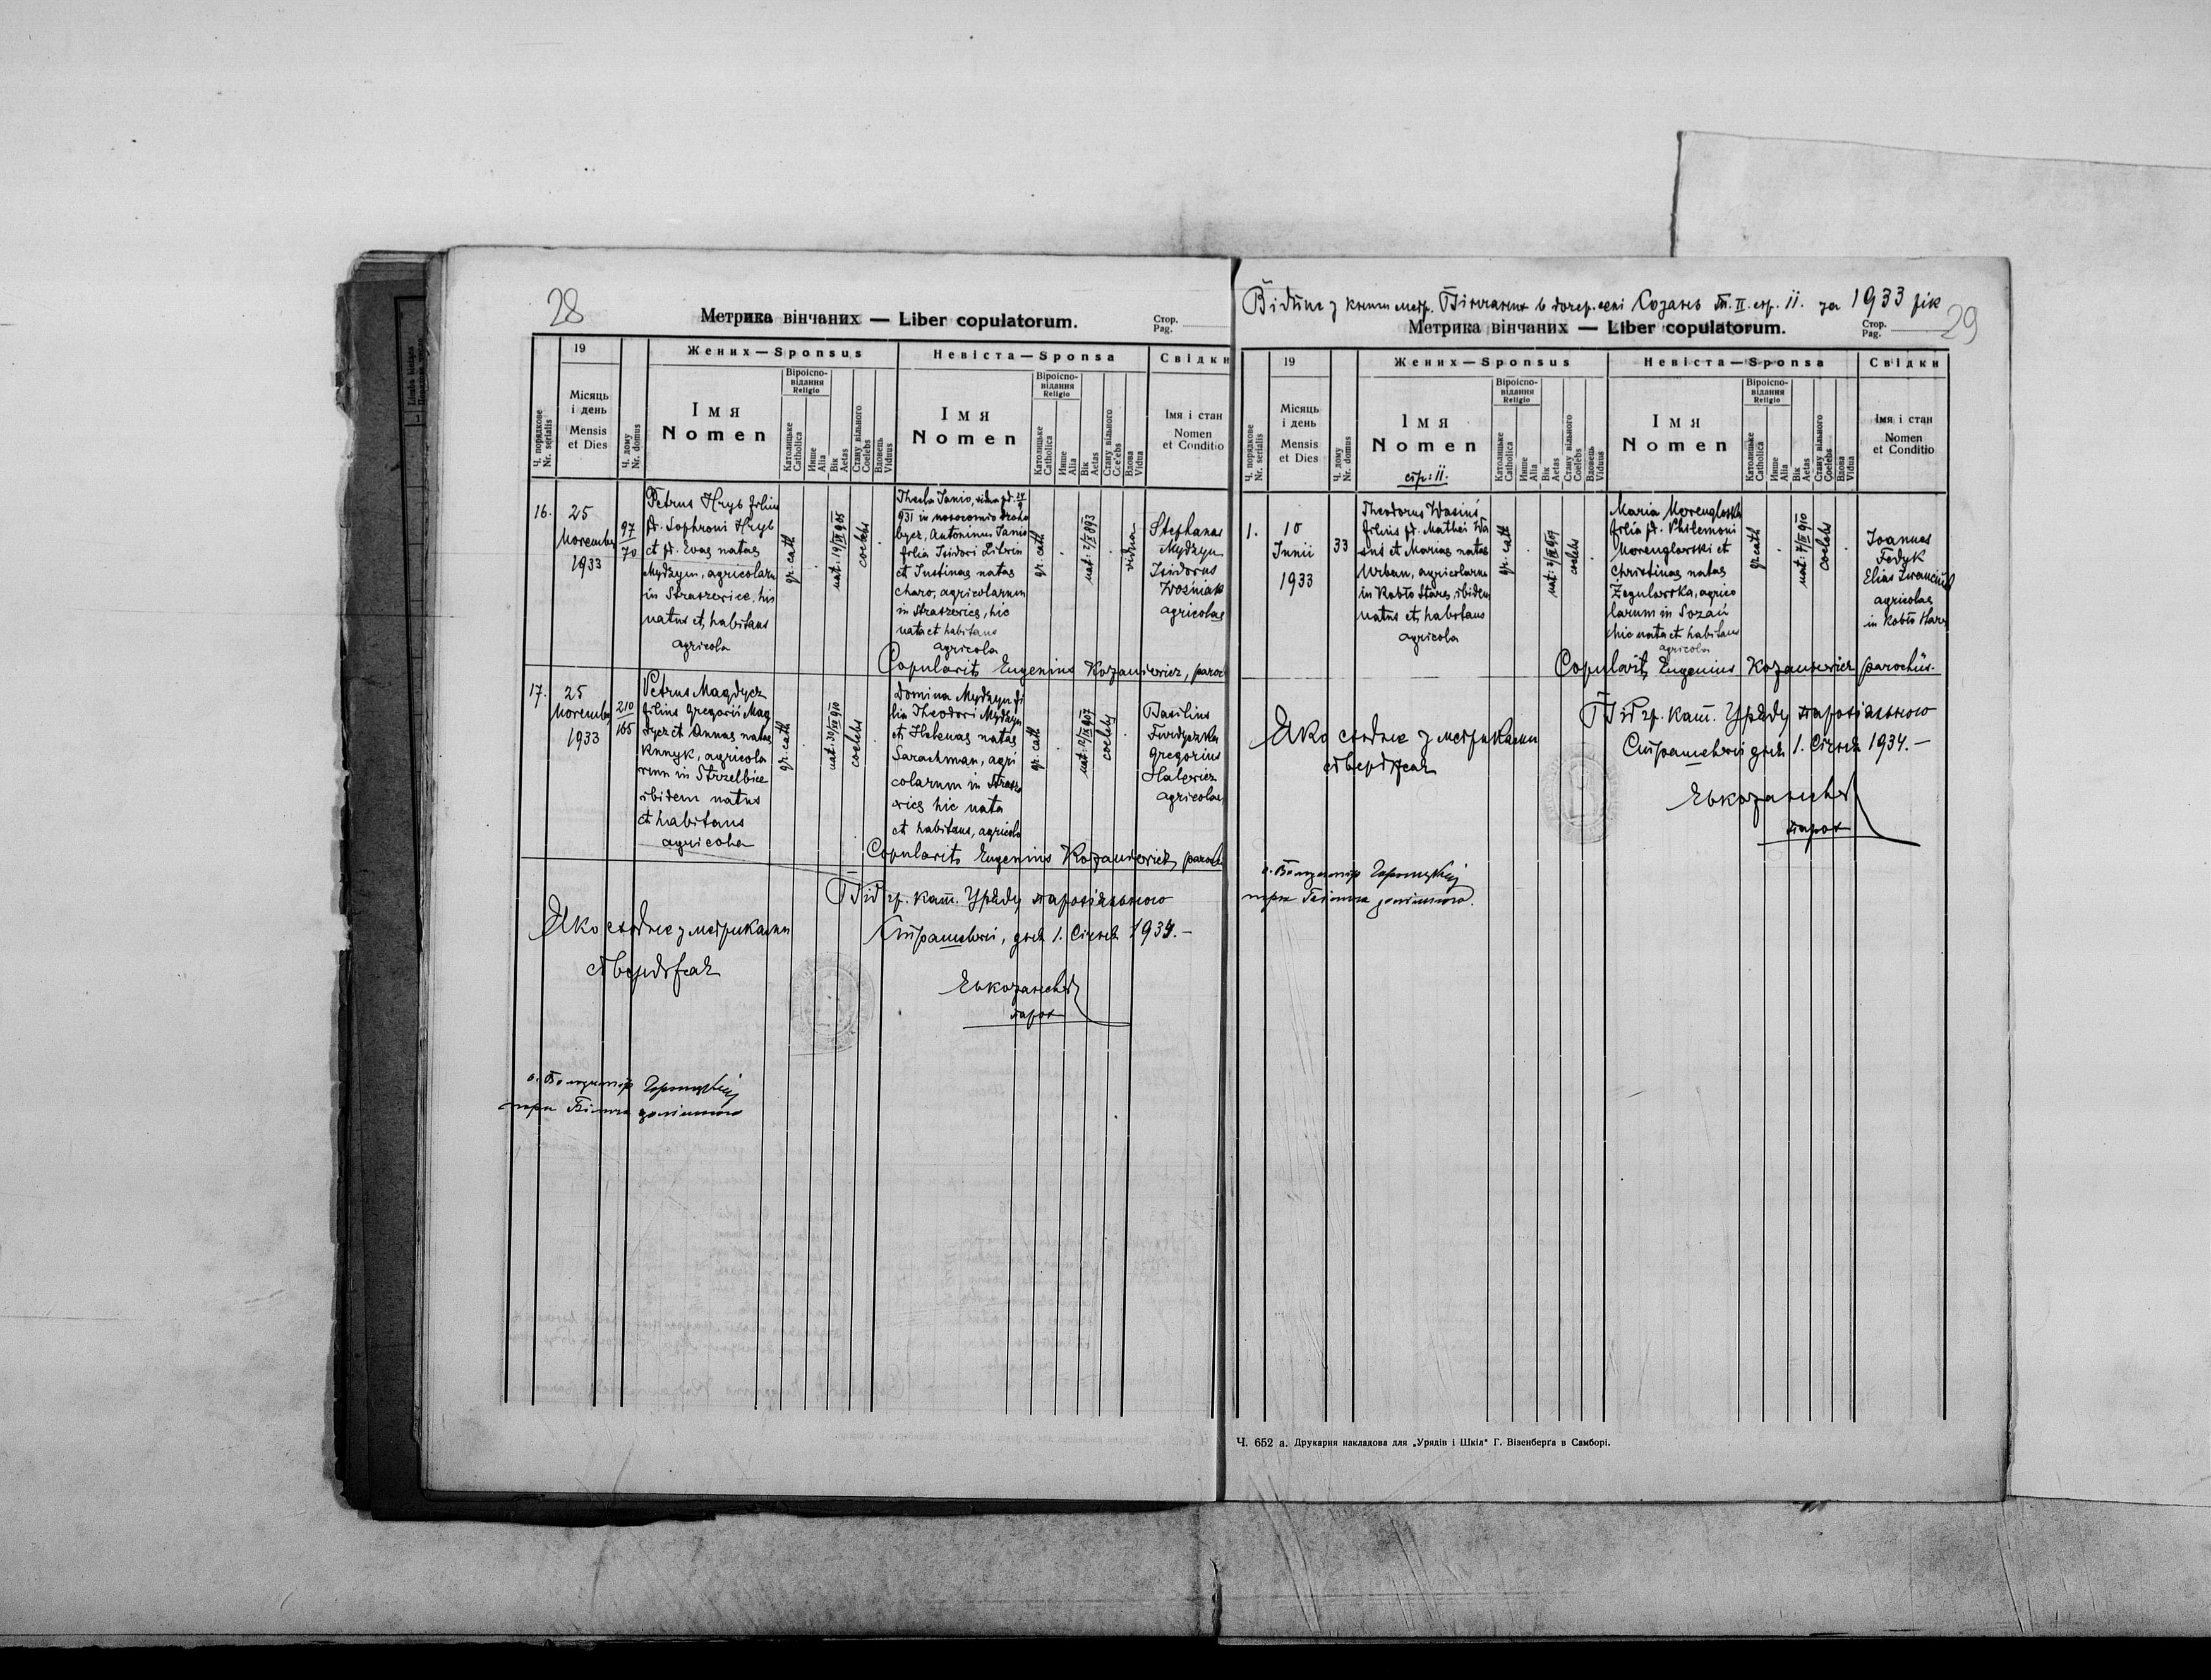 28
Метрика вінчаних — Liber copulatorum.
Стор.
Pag.
Ч. порядкове
Nr. serialis
19
Місяць
і день
Mensis
et Dies
Ч. дому
Nr. domus
Жених — Sponsus
Імя
Nomen
Віроіспо-
відання
Religio
Католицьке
Catholica
Инше
Alia
Вік
Aetas
Стану вільного
Coelebs
Вдовець
Viduus
Невіста — Sponsa
Імя
Nomen
Віроіспо-
відання
Religio
Католицьке
Catholica
Инше
Alia
Вік
Aetas
Стану вільного
Coelebs
Вдова
Vidua
Свідки
Імя і стан
Nomen
et Conditio
16.
25
Novembr
1933
97
70
Petrus Hryb filius
pd. Sophroni Hryb
et pd. Evas natas
Mydzyn, agricolarum
in Straszewice, hic
natus et habitans
agricola
gr. cath
nat: 19/IV 905
coelebs
Thecla Janio, vidua pd. IV
931 in nosocomio Droho
bycz, Antoninus Janio
filia Isidori
et Justinas natas
charo, agricolarum
in Straszewice, hic
nata et habitans
agricola
gr. cath
nat: 2/IX 893
vidua
Stephanas
Mydzyn
Isidorus
Woźniak
agricolae
Copulavit Eugenius Kozaniewicz, paroc
17.
25
Novembr
1933
210
165
Petrus Magdycz
filius Gregorii Mag
dycz et Annas natas
Knnyk, agricola
rum in Strzelbice
ibidem natus
et habitans
agricola
gr. cath
nat: 30/VI 910
coelebs
Domina Mydzyn fi
lia Theodori Mydzyn
et Helenas natas
Sarachman, agri
colarum in Strasz
wices hic nata
et habitans, agricola
gr. cath
nat: 12/IX 907
coelebs
Basilius
Gregorius
Halewicz
agricolae
Copulavit Eugenius Kozaniewicz, paroch
Від гр. кат. Уряду парохіяльного
Яко згідне з метриками
Страшевичі, дня 1. Січня 1934.—
стверджає
Евкозаневич
парох
о. Володимир
парох
Відпис з книги метр. Вінчаних в дочер. селі Созань т. II. стр. 11. за 1933 рік
Метрика вінчаних — Liber copulatorum.
Стор.
Pag.
29
Ч. порядкове
Nr. serialis
19
Місяць
і день
Mensis
et Dies
Ч. дому
Nr. domus
Жених — Sponsus
Імя
Nomen
стр: 11.
Віроіспо-
відання
Religio
Католицьке
Catholica
Инше
Alia
Вік
Aetas
Стану вільного
Coelebs
Вдовець
Viduus
Невіста — Sponsa
Імя
Nomen
Віроіспо-
відання
Religio
Католицьке
Catholica
Инше
Alia
Вік
Aetas
Стану вільного
Coelebs
Вдова
Vidua
Свідки
Імя і стан
Nomen
et Conditio
1.
10
Junii
1933
33
Theodorus Wasiuś
filius pd. Mathei Wa
siuś et Marias natas
Urban, agricolarum
in Kobło Stare, ibidem
natus et habitans
agricola
gr. cath
coelebs
Maria Morenglowska
filia pd. Philemoni
Morenglowski et
Christinas natas
Żegulowska, agrico
larum in Sozań
hic nata et habitans
agricola
gr. cath
nat: 7/IV 910
coelebs
Joannes
Fedyk
Elias
agricolae
in Kobło Stare
Copulavit Eugenius Kozaniewicz parochus.
Від гр. кат. Уряду парохіяльного
Яко згідне з метриками
Страшевичі дня 1. Січня 1934.—
стверджає
Евкозаневич
парох
о. Володимир
парох
Ч. 652 а. Друкарня накладова для „Урядів і Шкіл" Г. Візенберґа в Самборі.